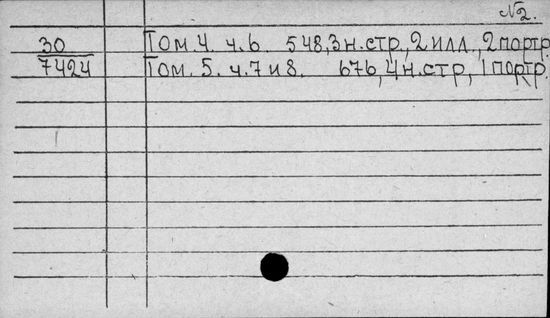 №2.
30 Том.4. ч.6. 548,3н.стр.,2илл.,2портр.
7424 Том.5. ч.7и8. 676,4н.стр,1портр.